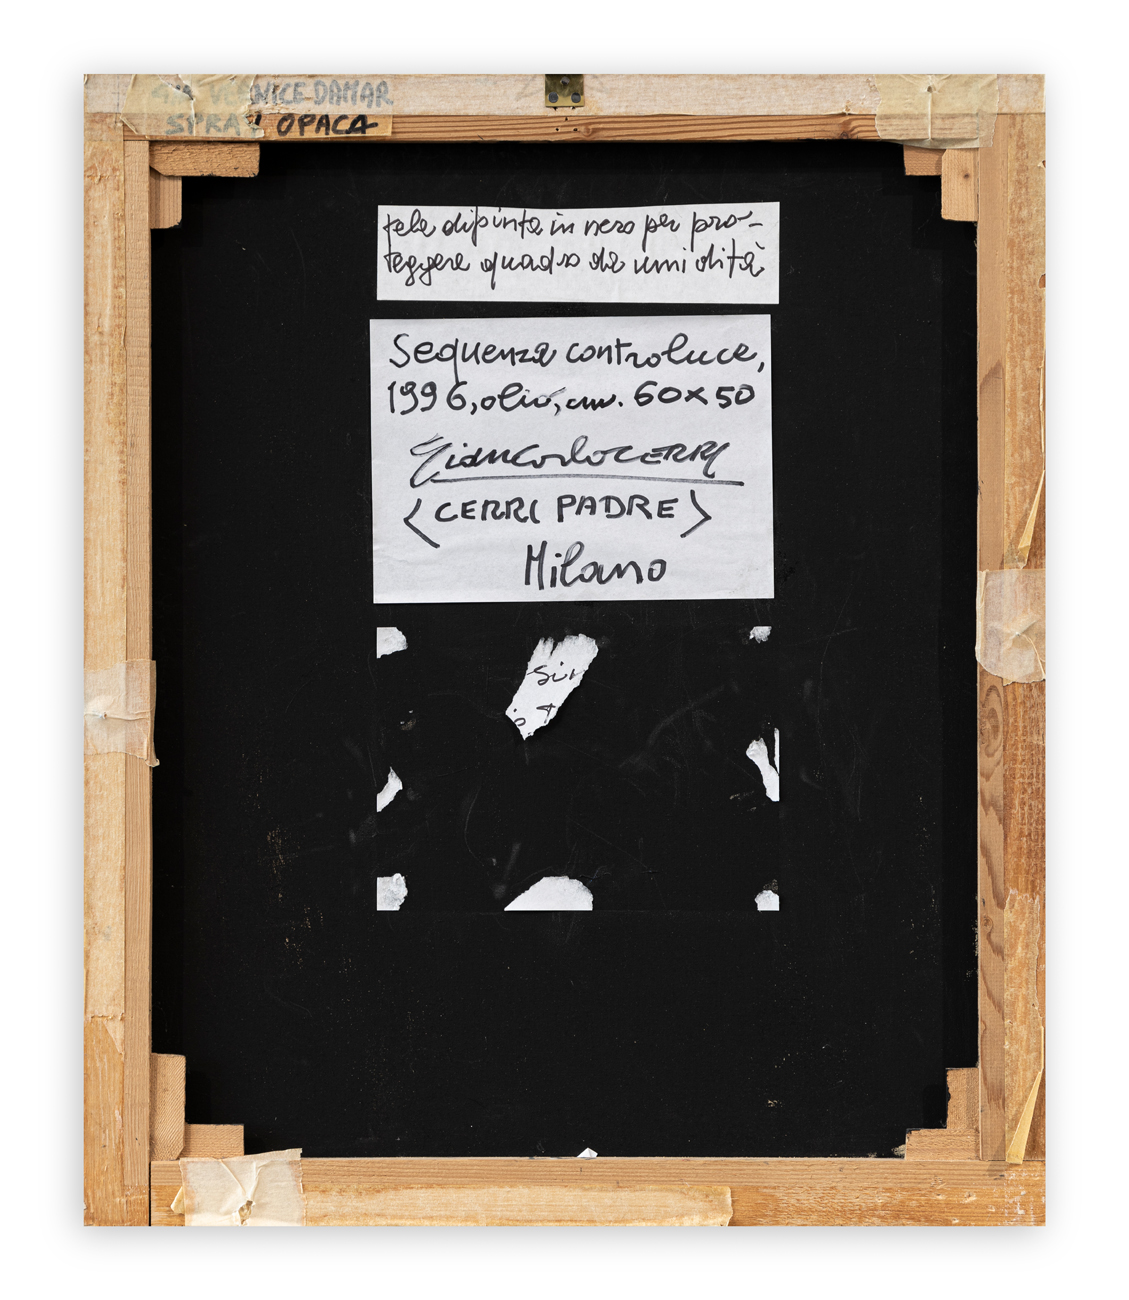 VERNICE DAMAR
SPRAY OPACA
tela dipinta in nero per pro-
teggere quadro da umidità
Sequenza controluce,
1996, olio, cm. 60x50
Giancarlo CERRI
(CERRI PADRE)
Milano